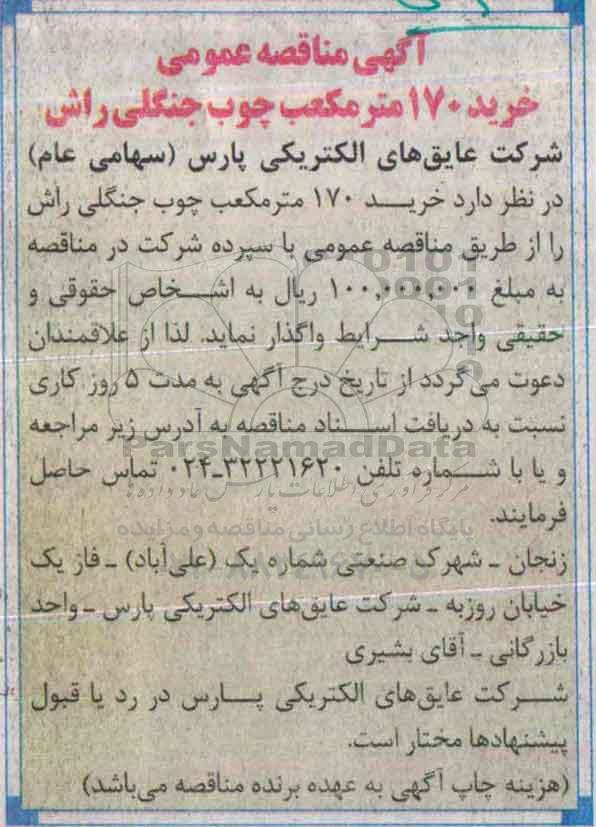 آگهی مناقصه عمومی
خرید ۱۷۰ متر مکعب چوب جنگلی راش
شرکت عایق‌های الکتریکی پارس (سهامی عام)
در نظر دارد خرید ۱۷۰ مترمکعب چوب جنگلی راش
را از طریق مناقصه عمومی با سپرده شرکت در مناقصه
به مبلغ ۱۰۰,۰۰۰,۰۰۰ ریال به اشخاص حقوقی و
حقیقی واجد شرایط واگذار نماید. لذا از علاقمندان
دعوت می‌گردد از تاریخ درج آگهی به مدت ۵ روز کاری
نسبت به دریافت اسناد مناقصه به آدرس زیر مراجعه
ParsNamadData
و یا با شماره تلفن ۳۲۲۲۱۶۲۰-۰۲۴ تماس حاصل
فرمایند.
پایگاه اطلاع رسانی مناقصه و مزایده
زنجان - شهرک صنعتی شماره یک (علی‌آباد) - فاز یک
خیابان روزبه - شرکت عایق‌های الکتریکی پارس - واحد
بازرگانی - آقای بشیری
شرکت عایق‌های الکتریکی پارس در رد یا قبول
پیشنهادها مختار است.
(هزینه چاپ آگهی به عهده برنده مناقصه می‌باشد)